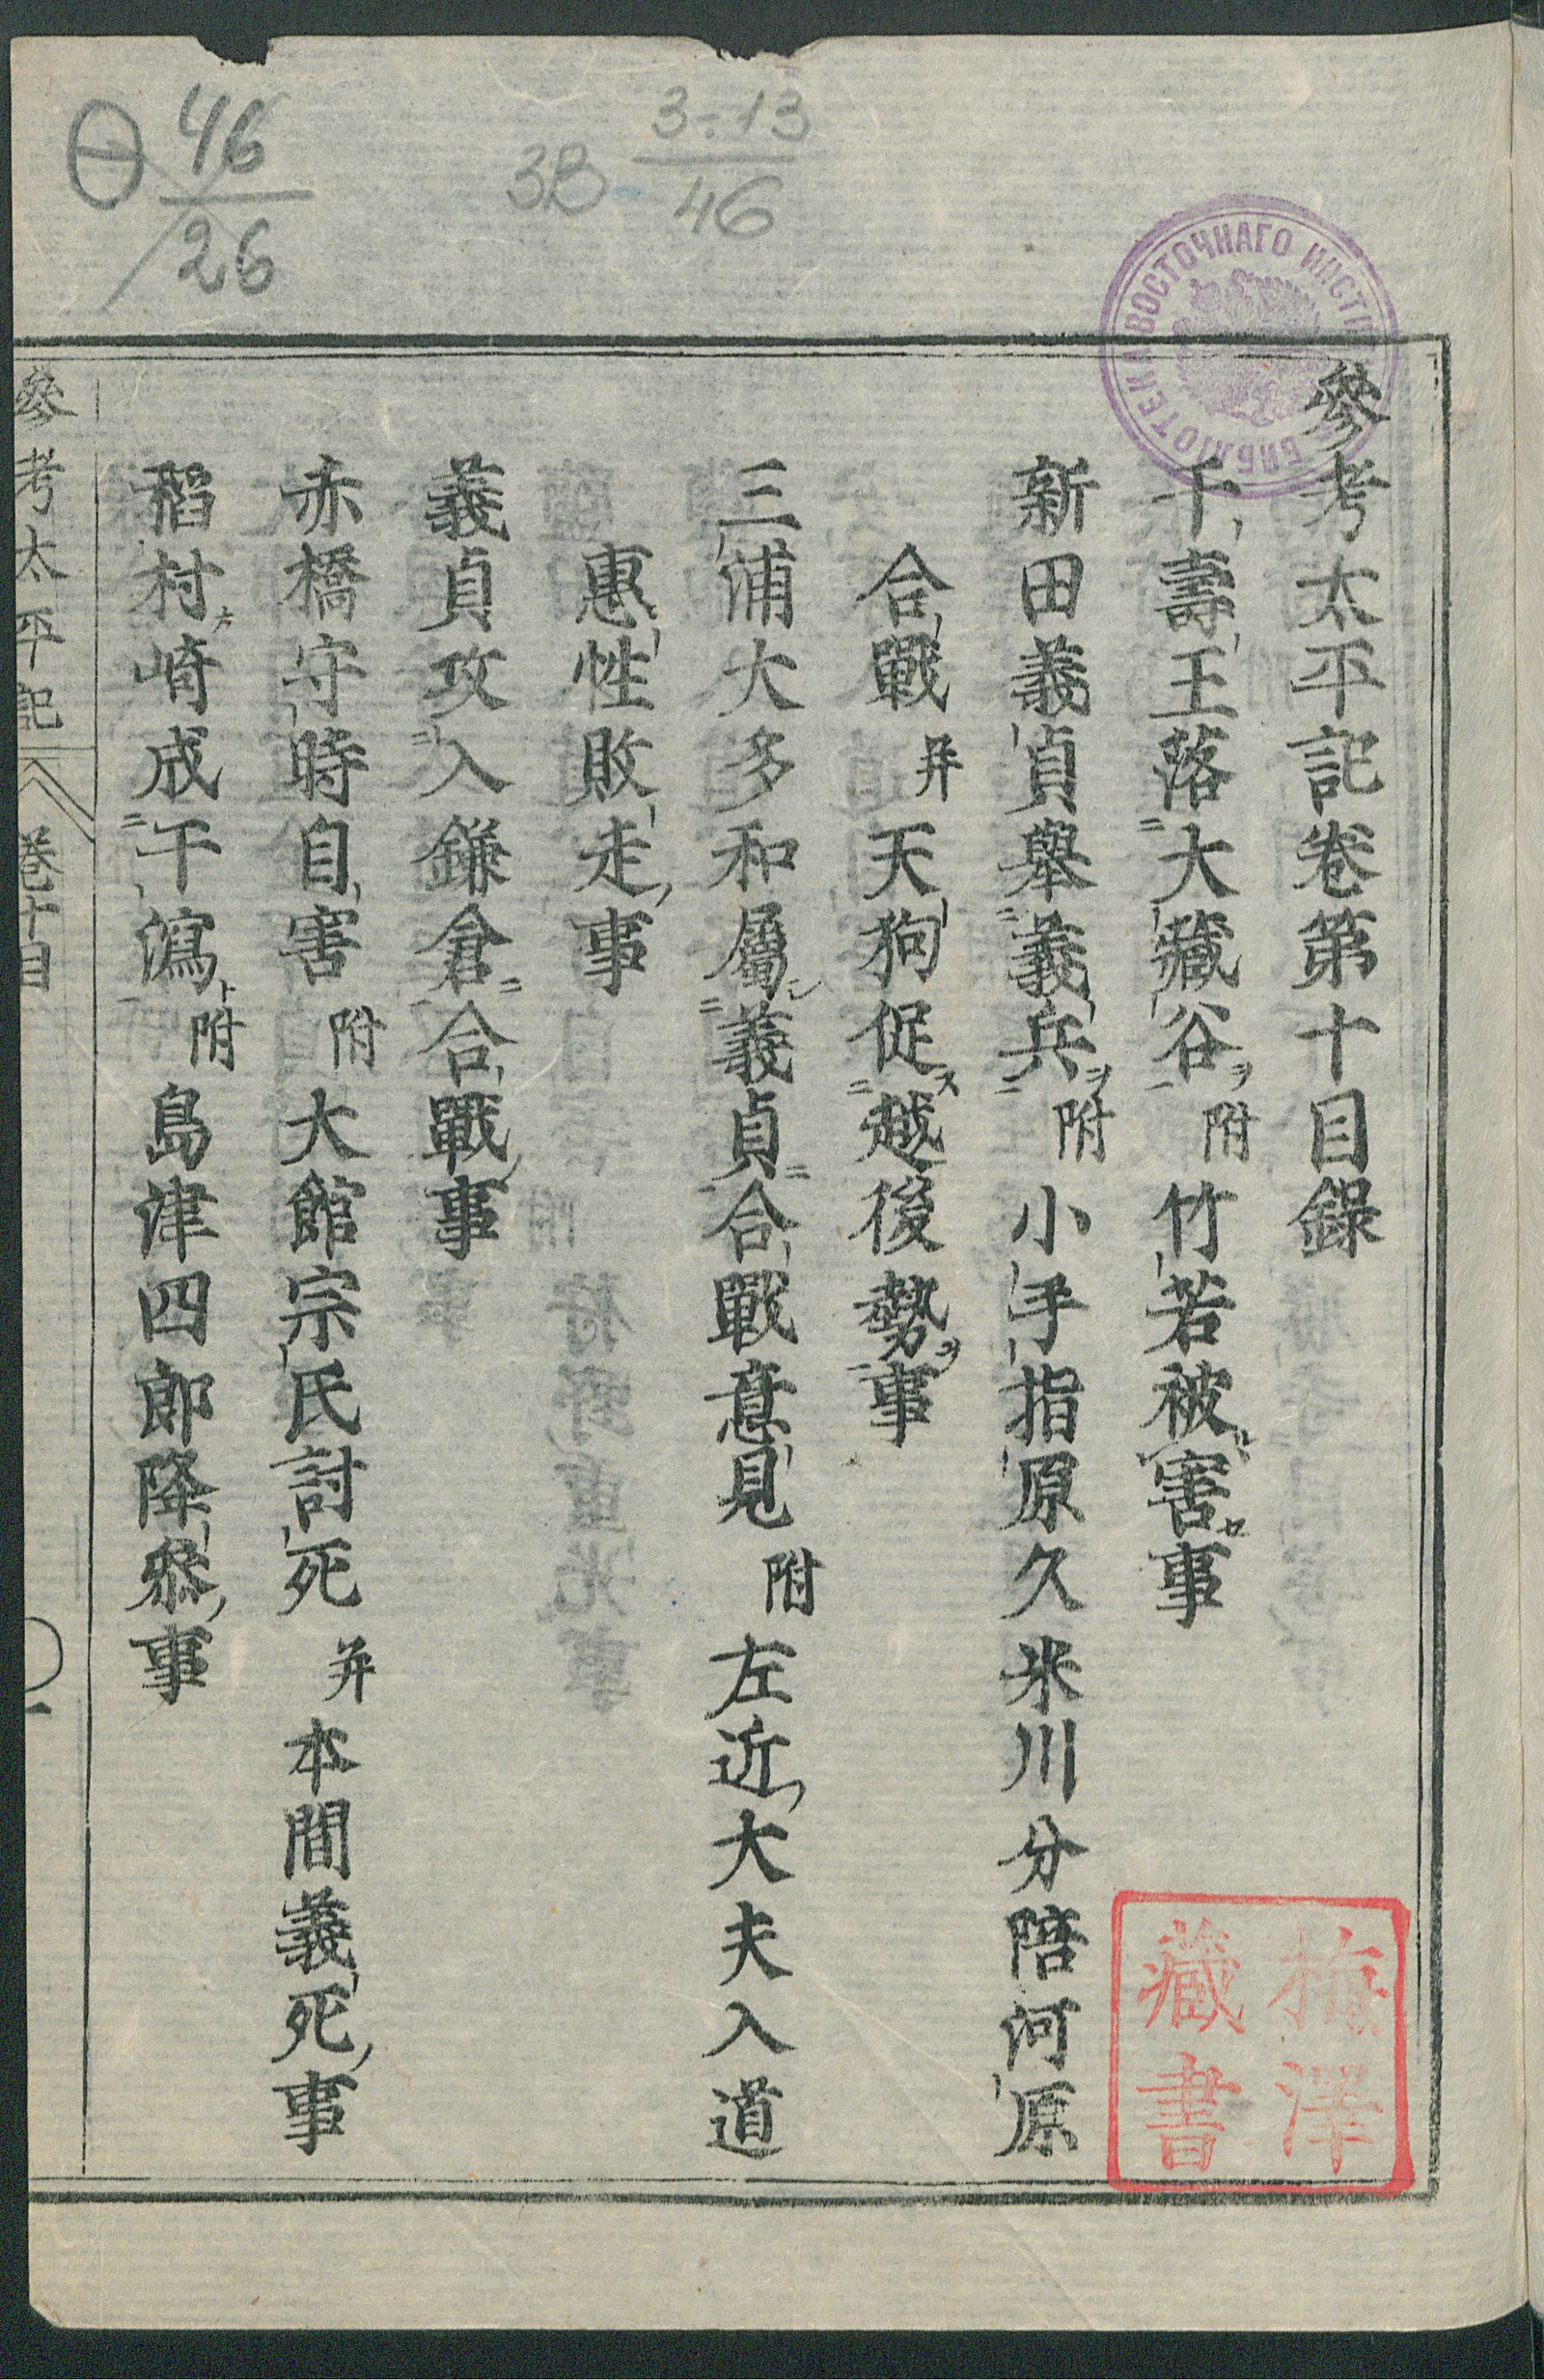 參考太平記卷第十目錄
千壽王落大藏谷附竹若被害事
新田義貞舉義兵附小手指原久米川分陪河原
合戰并天狗促越後勢事
三浦大多和屬義貞合戰意見附左近大夫入道
惠性敗走事
義貞攻入鎌倉合戰事
赤橋守時自害附大館宗氏討死并本間義死事
稻村崎成干瀉附島津四郎降參事
參考太平記 卷十目 一
46
26
3B 3-13
46
БИБЛІОТЕКА ВОСТОЧНАГО
梅澤
藏書